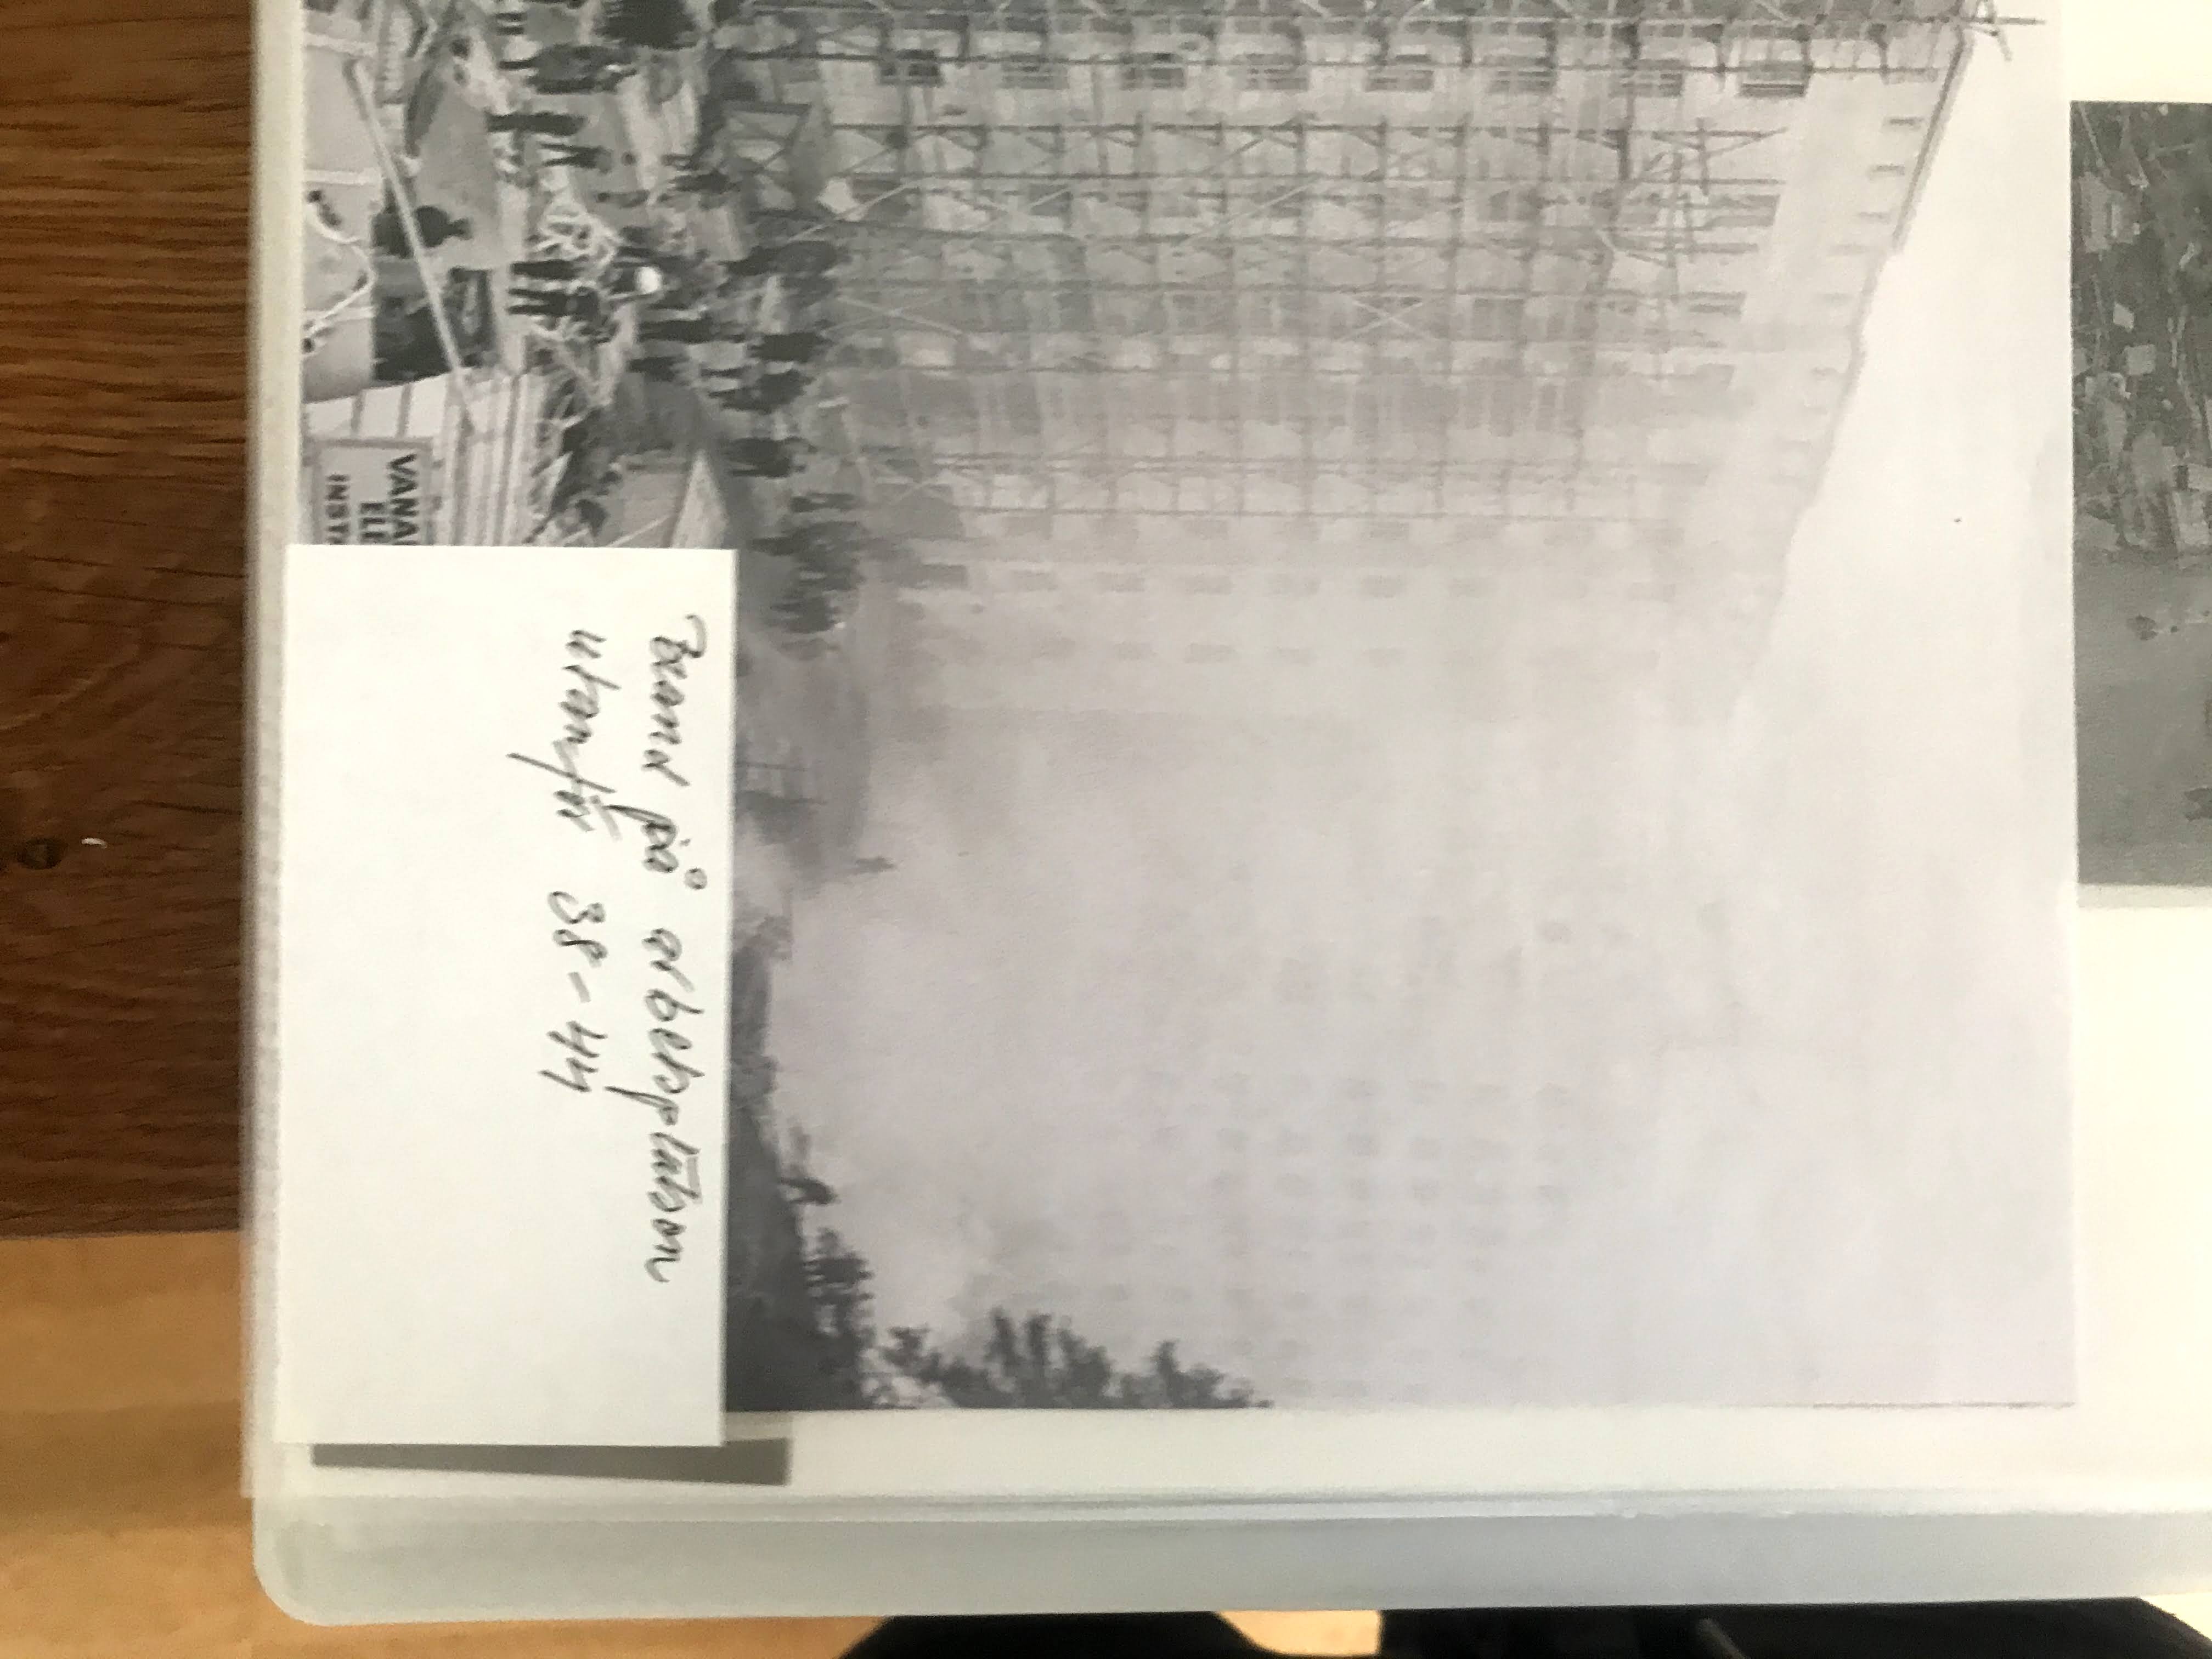 Brand på arbetsplatsen
utanför 38-44
VANA
ELE
INSTA